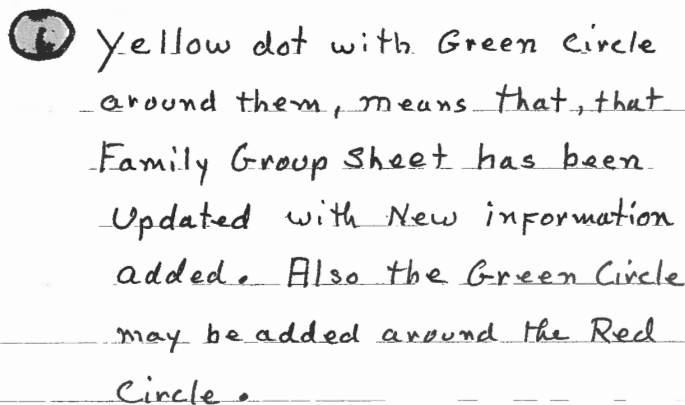 Yellow dot with Green Circle
around them, means that, that
Family Group Sheet has been
Updated with New information
added. Also the Green Circle
may be added around the Red
Circle.